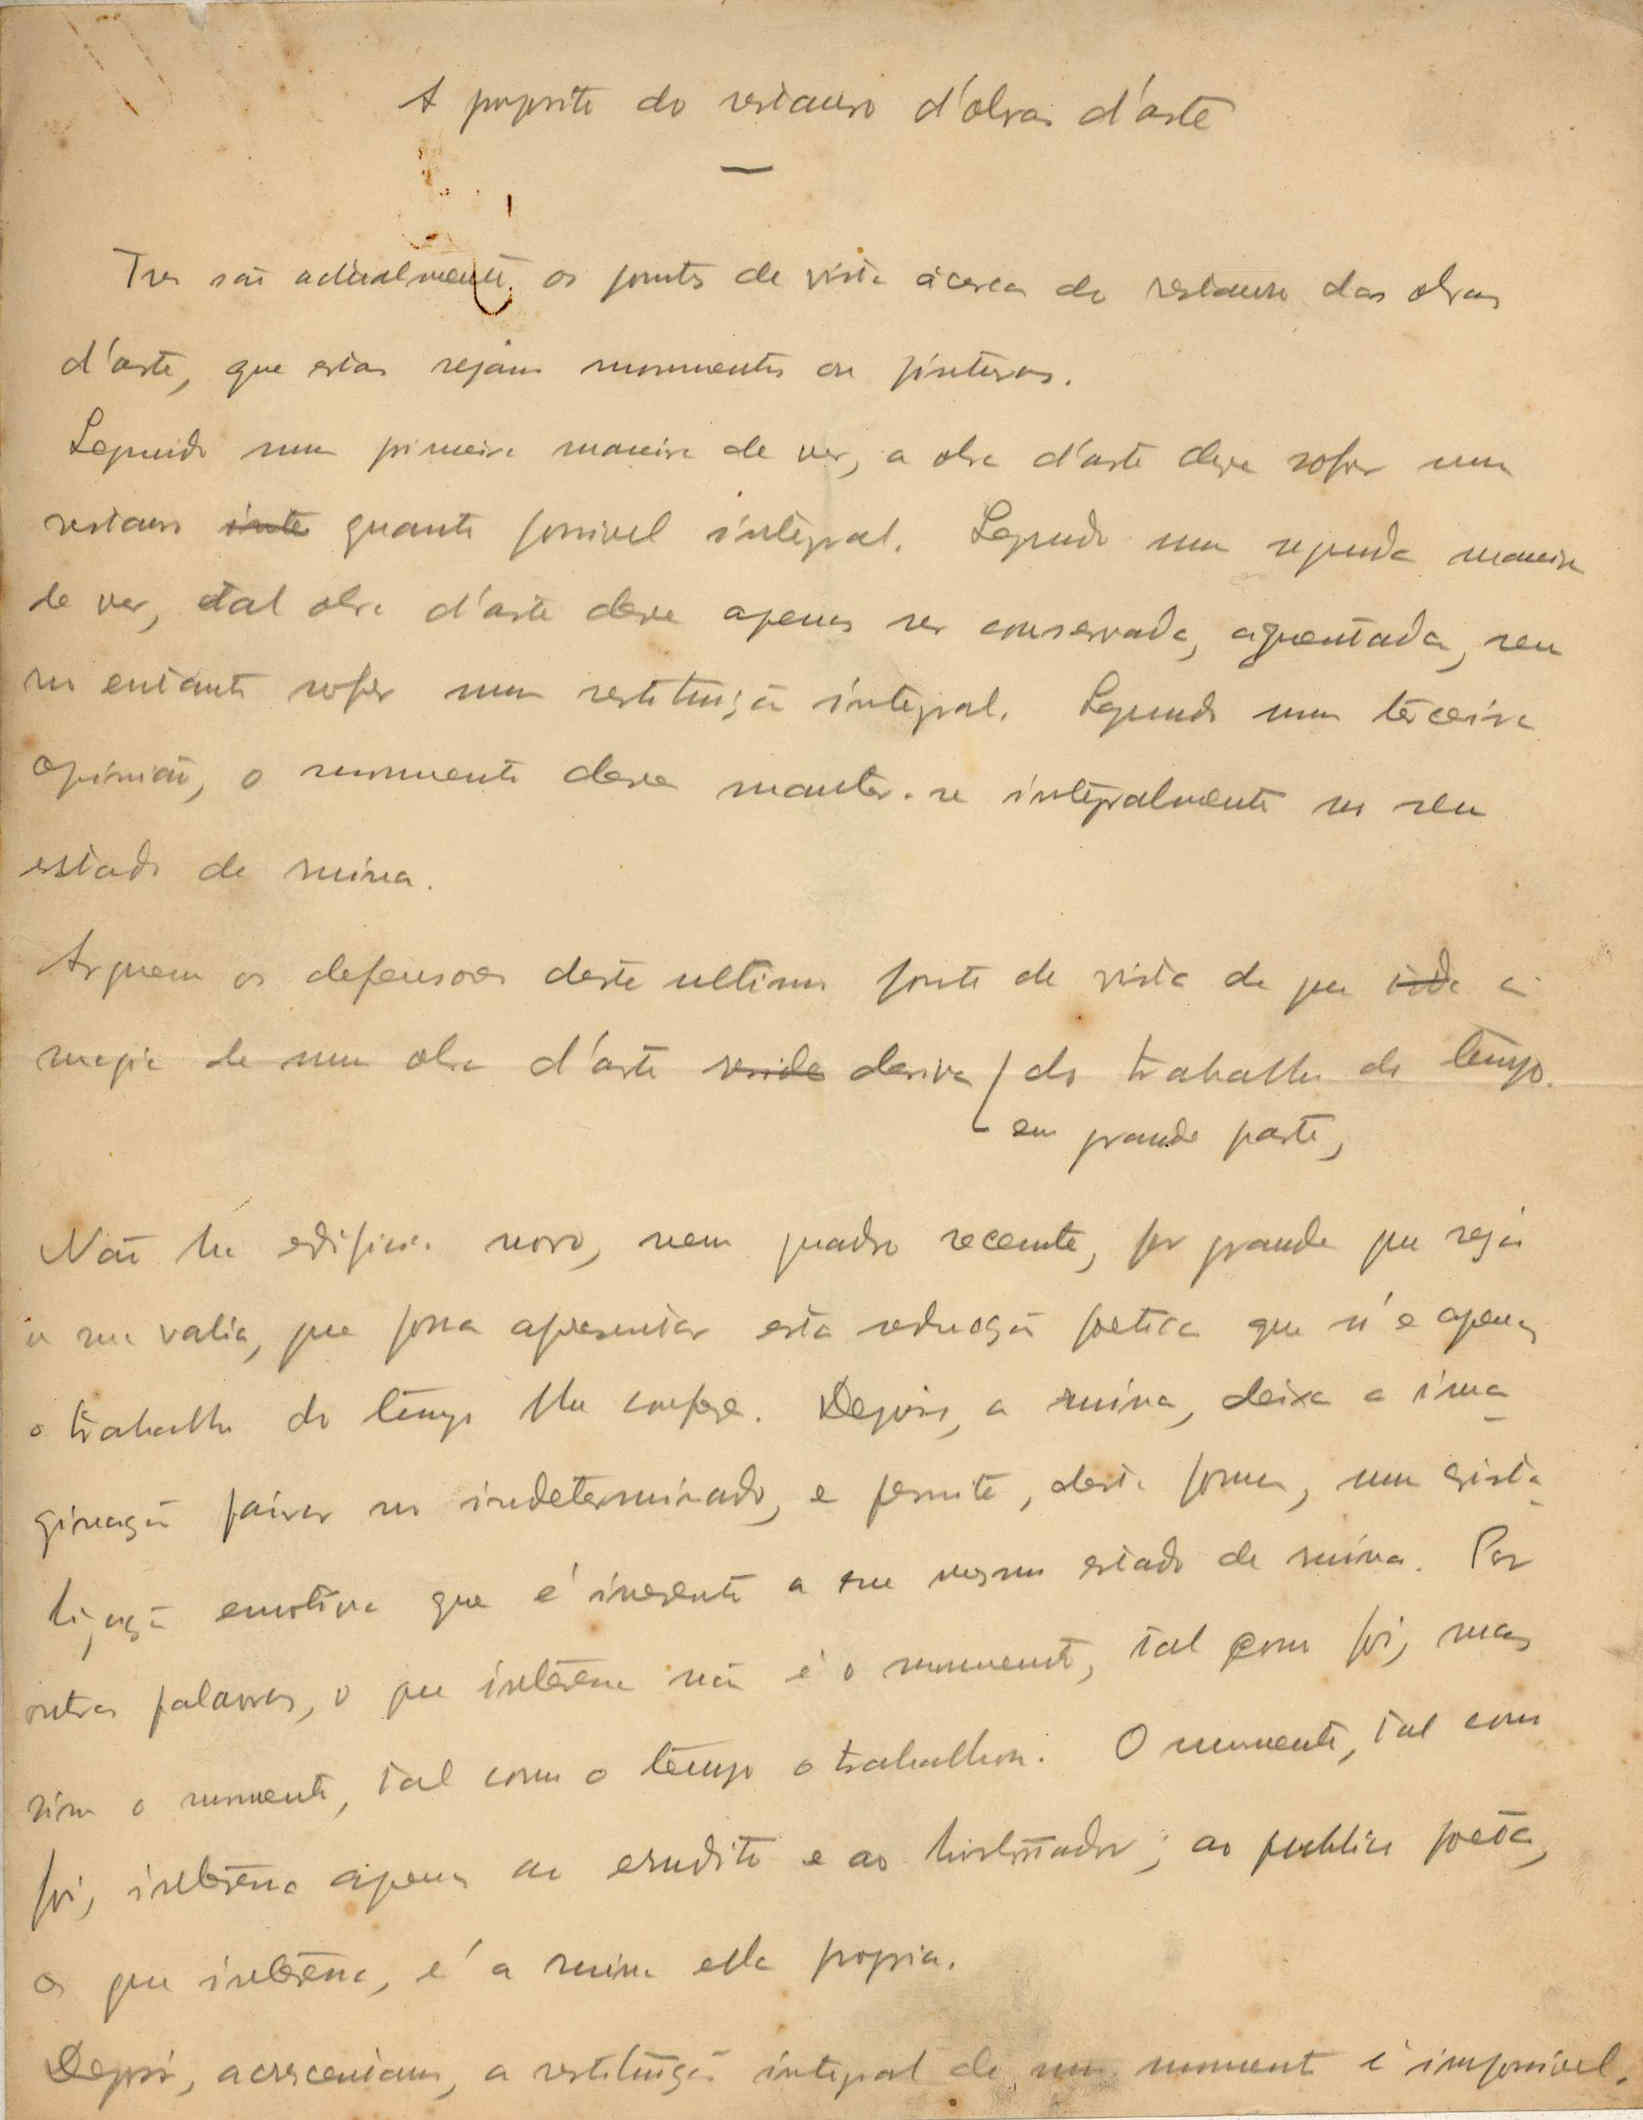 A proposito do restauro d'obras d'arte
Tres são actualmente os pontos de vista ácerca do restauro das obras
d'arte, que estas sejam monumentos ou pinturas.
Segundo uma primeira maneira de ver, a obra d'arte deve sofrer um
restauro inte quanto possivel integral. Segundo uma segunda maneira
de ver, tal obra d'arte deve apenas ser conservada, aguentada, sem
no entanto sofrer uma restituição integral. Segundo uma terceira
opinião, o monumento deve manter-se integralmente no seu
estado de ruina.
Arguem os defensores deste ultimo ponto de vista de que toda a
magia de uma obra d'arte deriva do trabalho do tempo.
em grande parte,
Não ha edificio novo, nem quadro recente, por grande que seja
a sua valia, que possa apresentar esta seducção poetica que só e apenas
o trabalho do tempo lhe confere. Depois, a ruina, deixa a ima-
ginação pairar no indeterminado, e permite, desta forma, uma
emotiva que é inerente a seu mesmo estado de ruina. Por
outras palavras, o que interessa não é o monumento, tal como foi, mas
sim o monumento, tal como o tempo o trabalhou. O monumento, tal como
foi, interessa apenas ao erudito e ao historiador; ao publico poeta,
o que interessa, é a ruina ella propria.
Depois, acrescentam, a restituição integral de um monumento é impossivel.